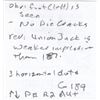 one foot (left) is
seen -
- No Die Cracks
red. Union Jack is
weaker impression
than 187.
3 horizontal dots
G 189